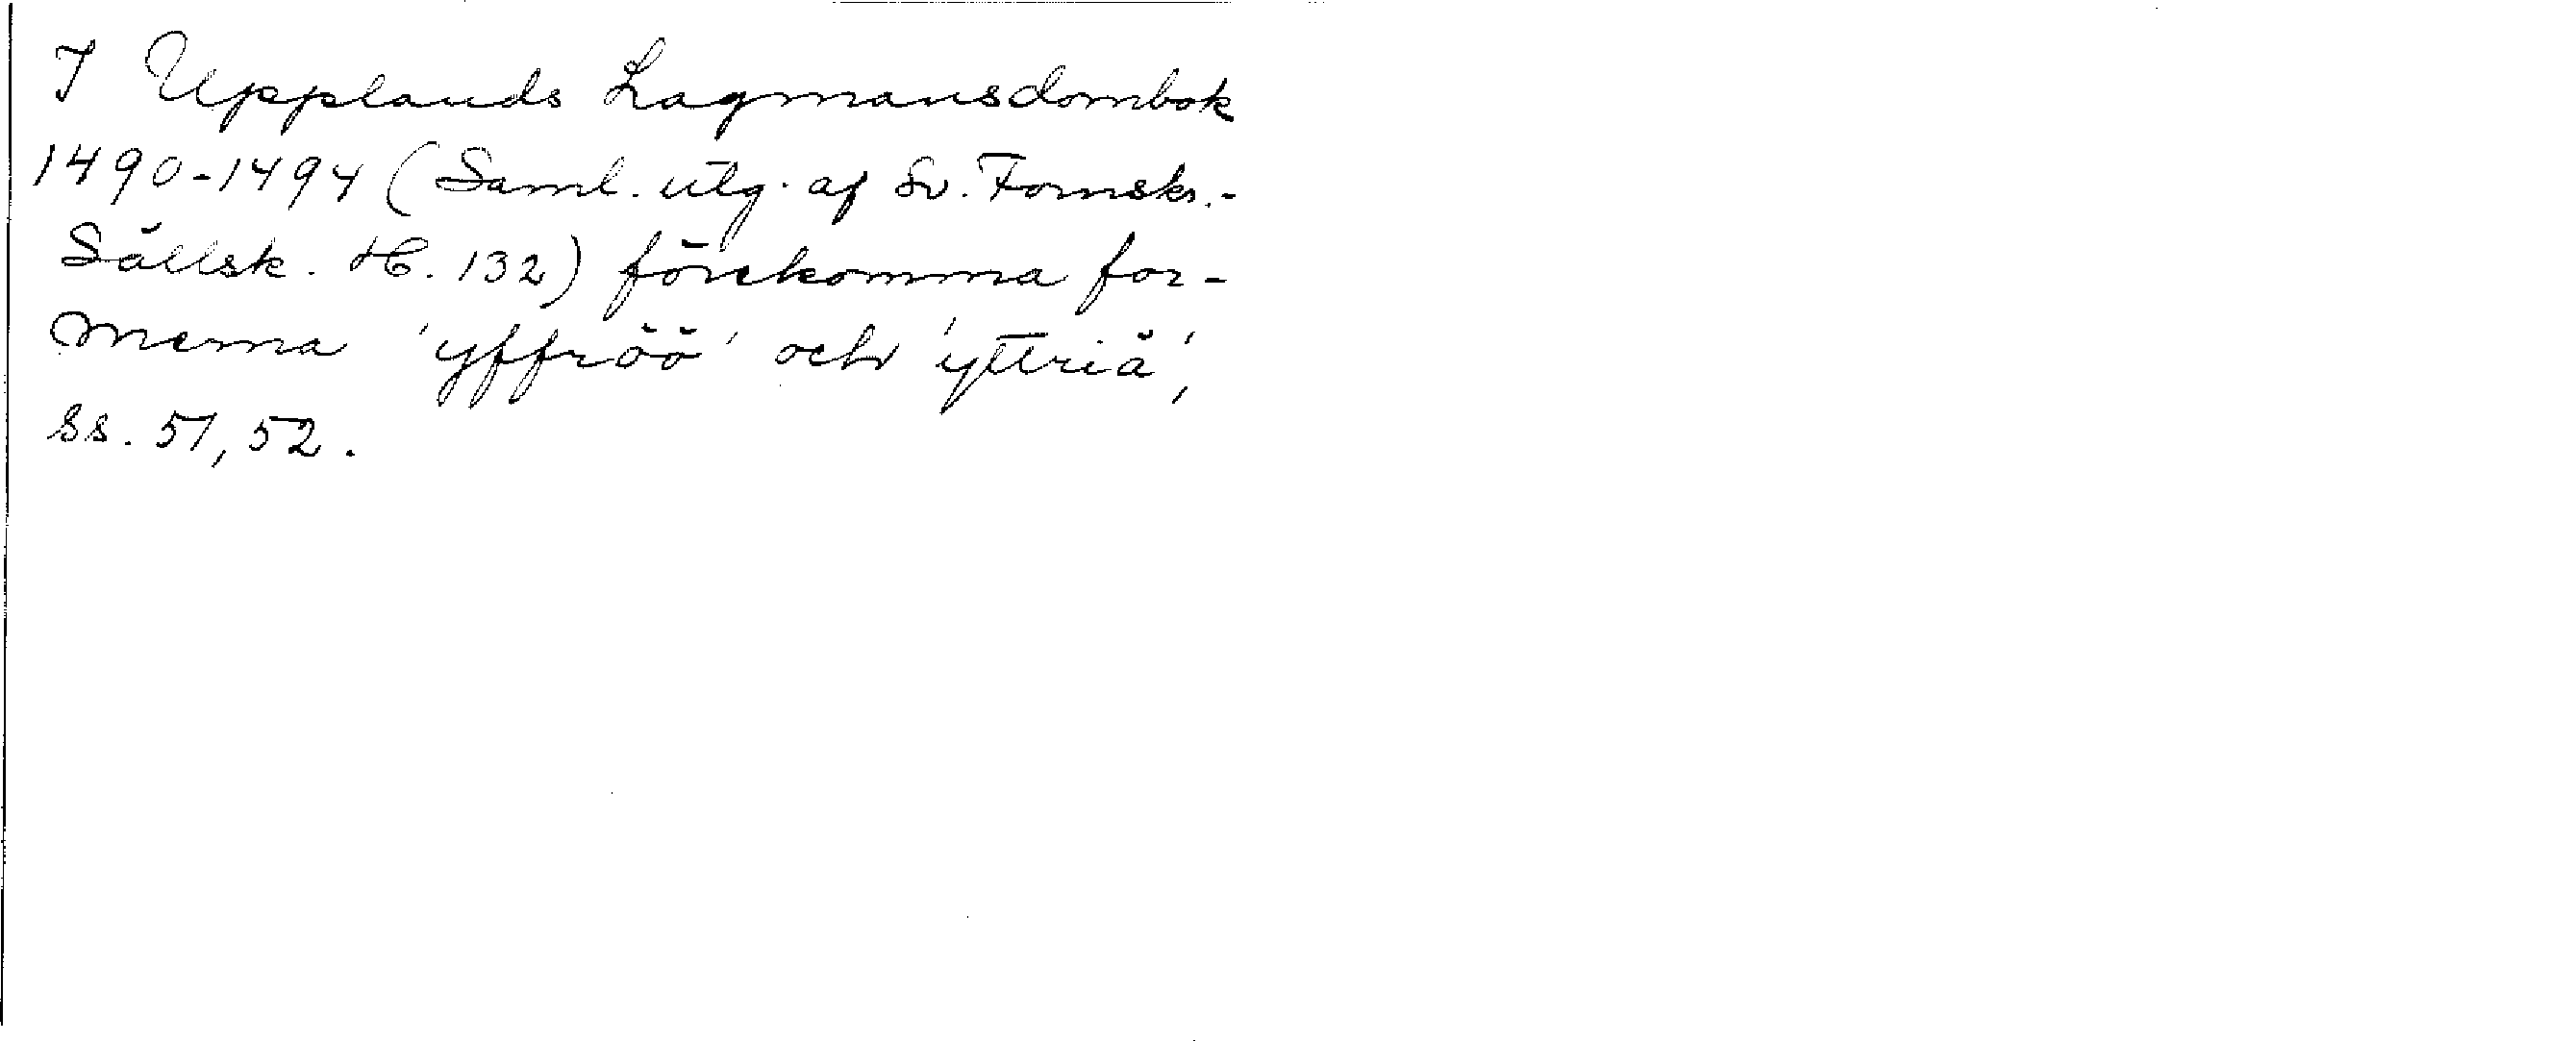 I Upplands Lagmansdombok
1490-1494 (Saml. utg. af Sv. Fornskr.-
Sällsk. H. 132) förekomma for-
merna 'yffröö' och 'yttriä',
ss. 51, 52.